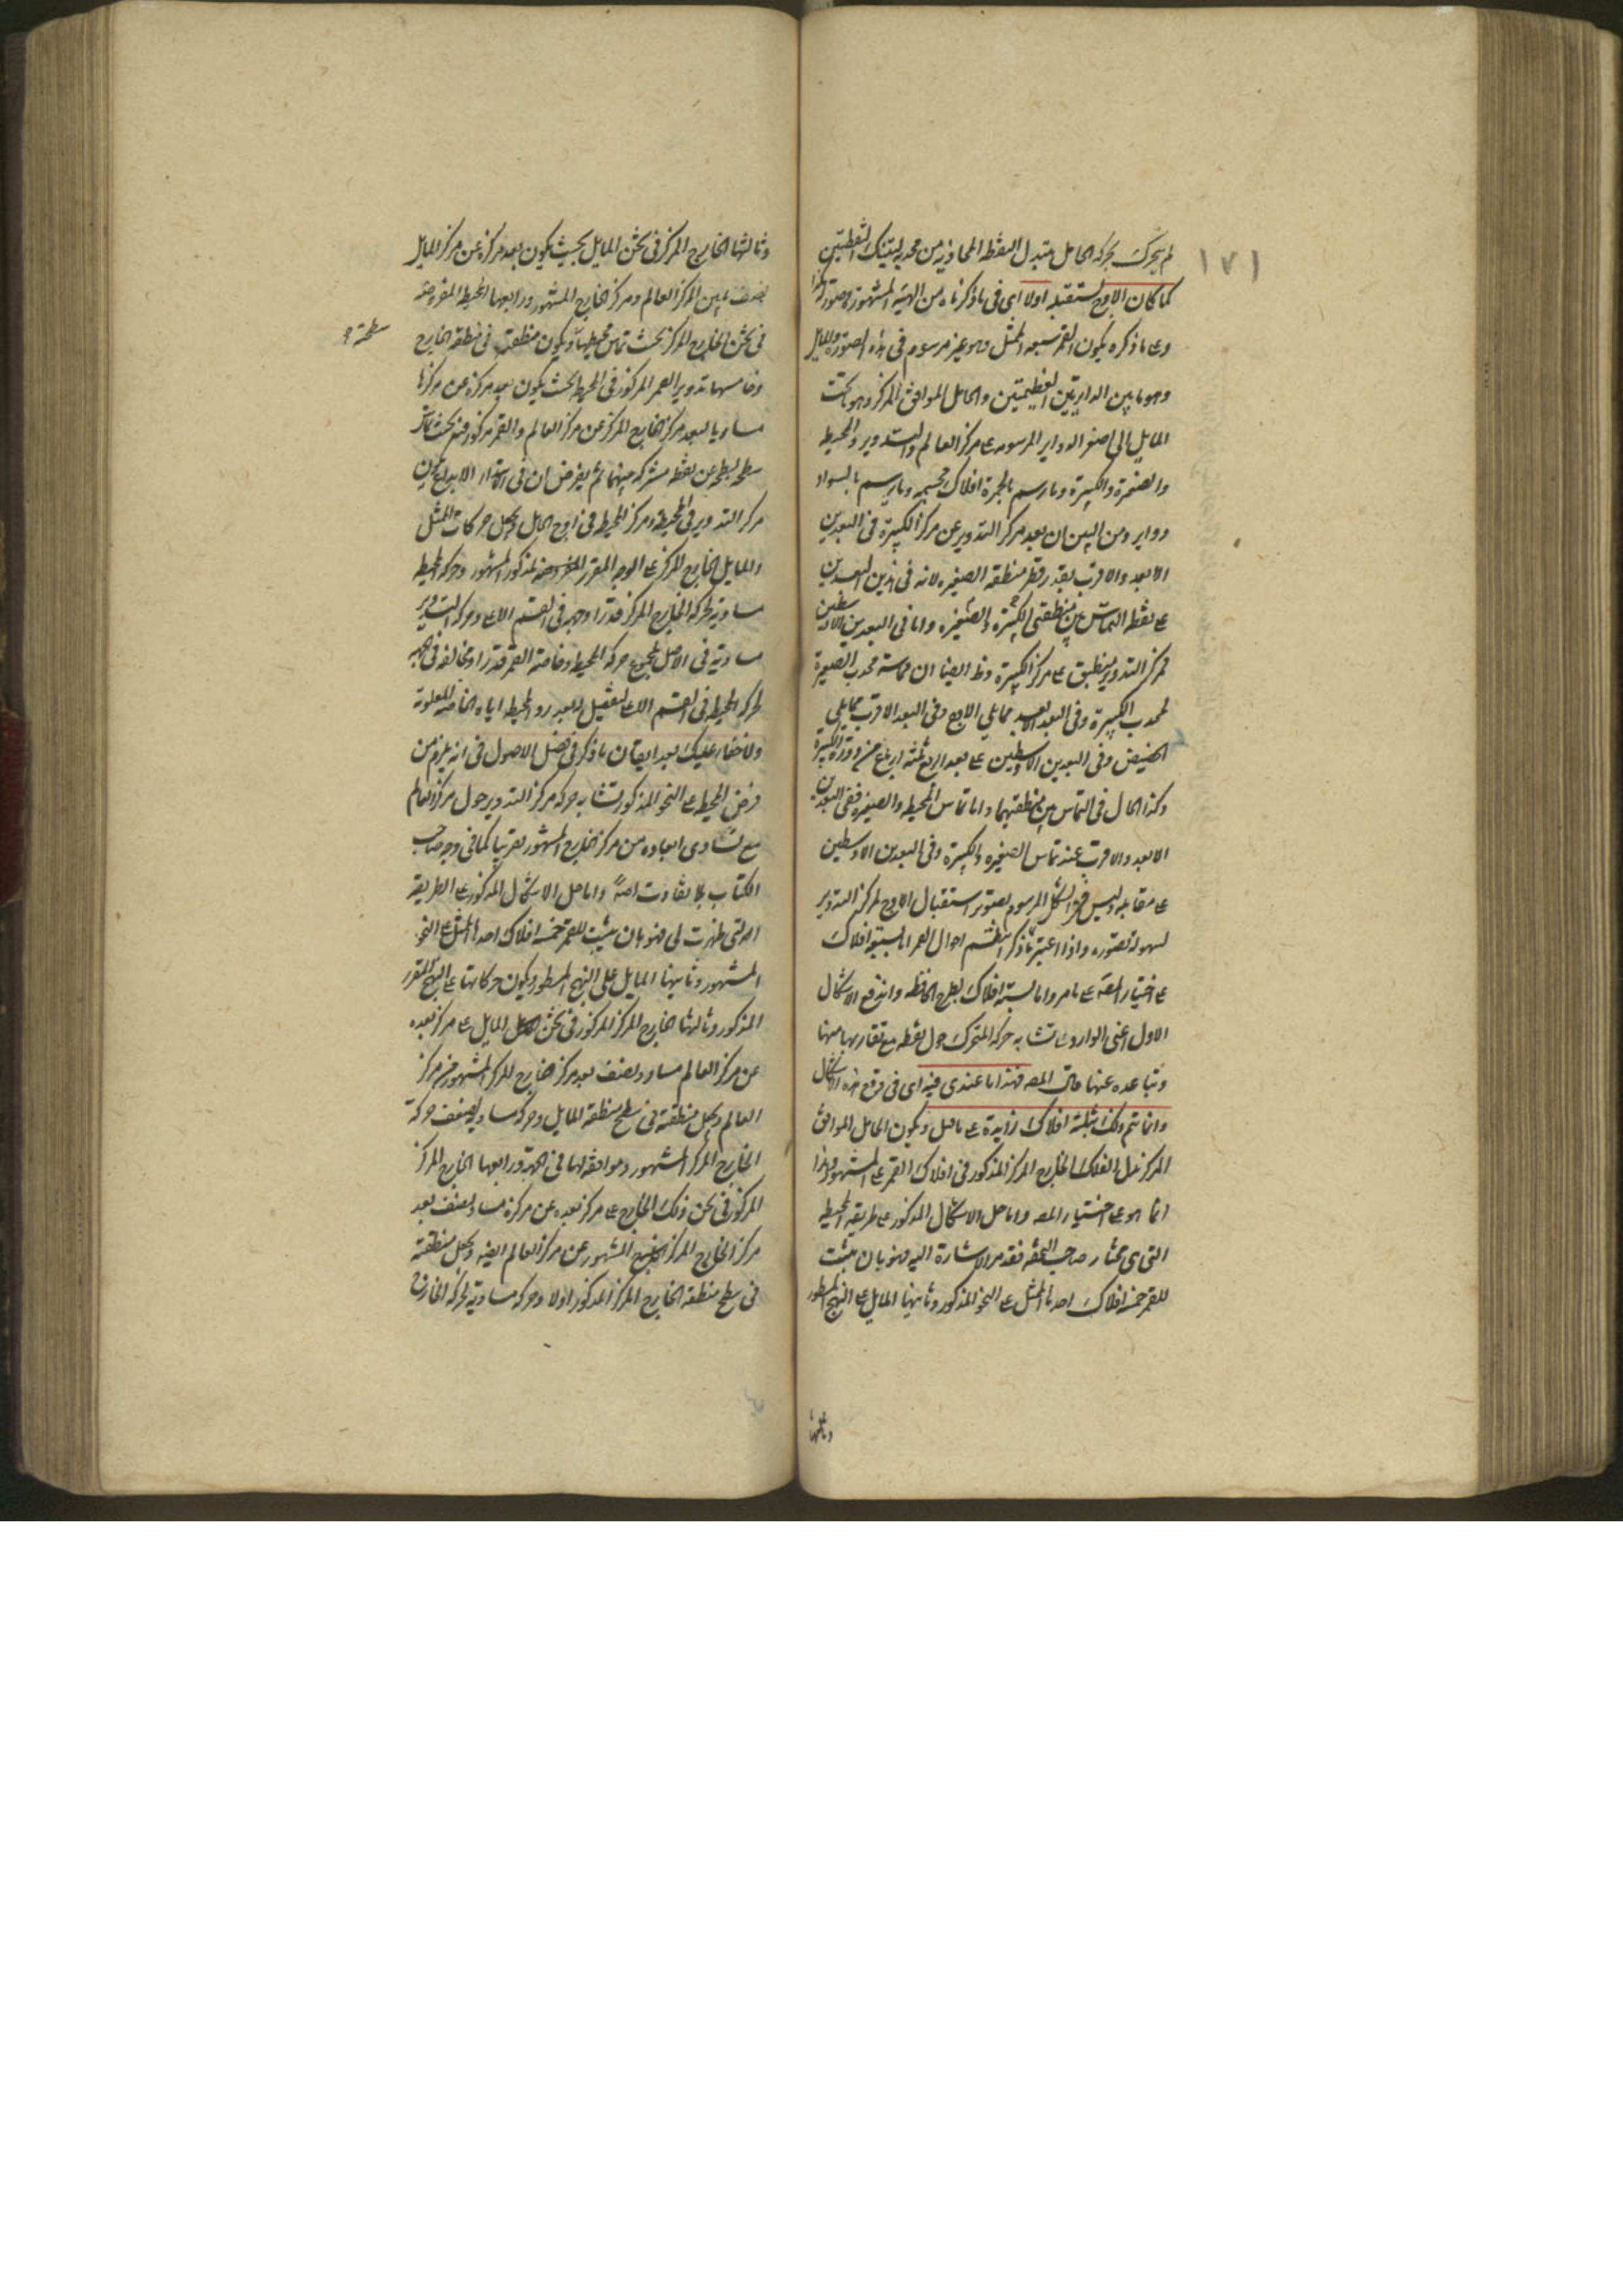 ١٧١
لم يتحرك بحركة الحامل يتبدل النقطة المحاذية من محدبه لتينك النقطتين
كما كان الاوج يستقبله اولا اى فى ما ذكرناه من الهيئة المشهورة وصورته هكذا
وعلى ما ذكره يكون للقمر سبعة الممثل وهو غير مرسوم فى هذه الصورة والمايل
وهو ما بين الدايرتين العظيمتين والحامل الموافق المركز وهو تحت
المايل الى اصغر الدواير المرسومة على مركز العالم والتدوير والمحيطة
والصغيرة والكبيرة وما رسم بالحمرة افلاك مجسمة وما رسم بالسواد
دواير ومن البين ان بعد مركز التدوير عن مركز الكبيرة فى البعدين
الابعد والاقرب بقدر قطر منطقة الصغيرة لانه فى هذين البعدين
على نقطة التماس بين منطقتى الكبيرة والصغيرة واما فى البعدين الاوسطين
فمركز التدوير ينطبق على مركز الكبيرة وظ ايضا ان مماسة محدب الصغيرة
لمحدب الكبيرة وفى البعد الابعد مما يلى الاوج وفى البعد الاقرب مما يلى
الحضيض وفى البعدين الاوسطين على بعد اربع ثلثة ارباع من دورة الكبيرة
وكذا الحال فى التماس بين منطقتيهما واما تماس المحيطة والصغيرة ففى البعدين
الابعد والاقرب عند تماس الصغيرة والكبيرة وفى البعدين الاوسطين
على مقابله وليس فى الشكل المرسوم تصوير استقبال الاوج لمركز التدوير
لسهولة تصوره واذا اعتبر ما ذكر انتظم احوال القمر اما بسبعة افلاك
على اختيار المصه على ما مر واما بستة افلاك بطرح الحافظة واندفع الاشكال
الاول اعنى الوارد على تشابه حركة المتحرك حول نقطة مع تقاربها منها
وتباعده عنها قال المصه فهذا ما عندى فيه اى فى دفع هذه الاشكال
وانما تم ذلك بثلثة افلاك زايدة على ما قيل ويكون الحامل الموافق
المركز بدل الفلك الخارج المركز المذكور فى افلاك القمر على المشهور وهذا
انما هو على اختيار المصه واما حل الاشكال المذكور على طريقة المحيطة
التى هى مختار صاحب التحفة فقد مر الاشارة اليه فهو بان يثبت
للقمر خمسة افلاك احدها الممثل على النحو المذكور وثانيها المايل على النهج المسطور
وثالثها
وثالثها الخارج المركز فى ثخن المايل بحيث يكون بعد مركزه عن مركز المايل
نصف ما بين مركز العالم ومركز الخارج المشهور ورابعها المحيطة المفروضة
فى ثخن الخارج المركز بحيث تماس محيطها ويكون منطقته فى منطقة الخارج
سطحة
وخامسها تدوير القمر المركوز فى المحيطة بحيث يكون بعد مركزه عن مركزها
مساويا لبعد مركز الخارج المركز عن مركز العالم والقمر مركوز فيه بحيث تماس
سطحه سطحه عن نقطة مشتركة بينهما ثم يفرض ان فى ابتداء الابداع يكون
مركز التدوير فى المحيطة ومركز المحيطة فى اوج الحامل وجعل حركات الممثل
والمايل الخارج المركز على الوجه المقرر المذكور المشهور وحركة المحيطة
مساوية لحركة الخارج المركز قدرا وجهة فى القسم الاعلى وحركة التدوير
مساوية فى الاصل لمجموع حركة المحيطة وخاصة القمر قدرا ومخالفة فى الجهة
لحركة المحيطة فى القسم الاعلى ليفضل بعد رد المحيطة اياه الخاصة المعلومة
ولا خفاء عليك بعد ايقان ما ذكر فى فصل الاصول فى انه يلزم من
فرض المحيطة على النحو المذكور تشابه حركة مركز التدوير حول مركز العالم
مع تساوى ابعاده من مركز الخارج المشهور تقريبا كما فى وجه صاحب
الكتاب بلا تفاوت اصلا واما حل الاشكال المذكور على الطريقة
التى ظهرت لى فهو بان يثبت للقمر خمسة افلاك احدها الممثل على النحو
المشهور وثانيها المايل على النهج المسطور ويكون حركاتها على النهج المقرر
المذكور وثالثها الخارج المركز المركوز فى ثخن المايل على مركز بعده
عن مركز العالم مساو لنصف بعد مركز خارج المركز المشهور من مركز
العالم وجعل منطقته فى سطح منطقة المايل وحركته مساوية لضعف حركة
الخارج المركز المشهور وموافقة لها فى الجهة ورابعها الخارج المركز
المركوز فى ثخن ذلك الخارج على مركز بعده عن مركزه مساو لنصف بعد
مركز الخارج المركز المشهور عن مركز العالم ايضه وجعل منطقته
فى سطح منطقة الخارج المركز المذكور اولا وحركته مساوية لحركة الخارج